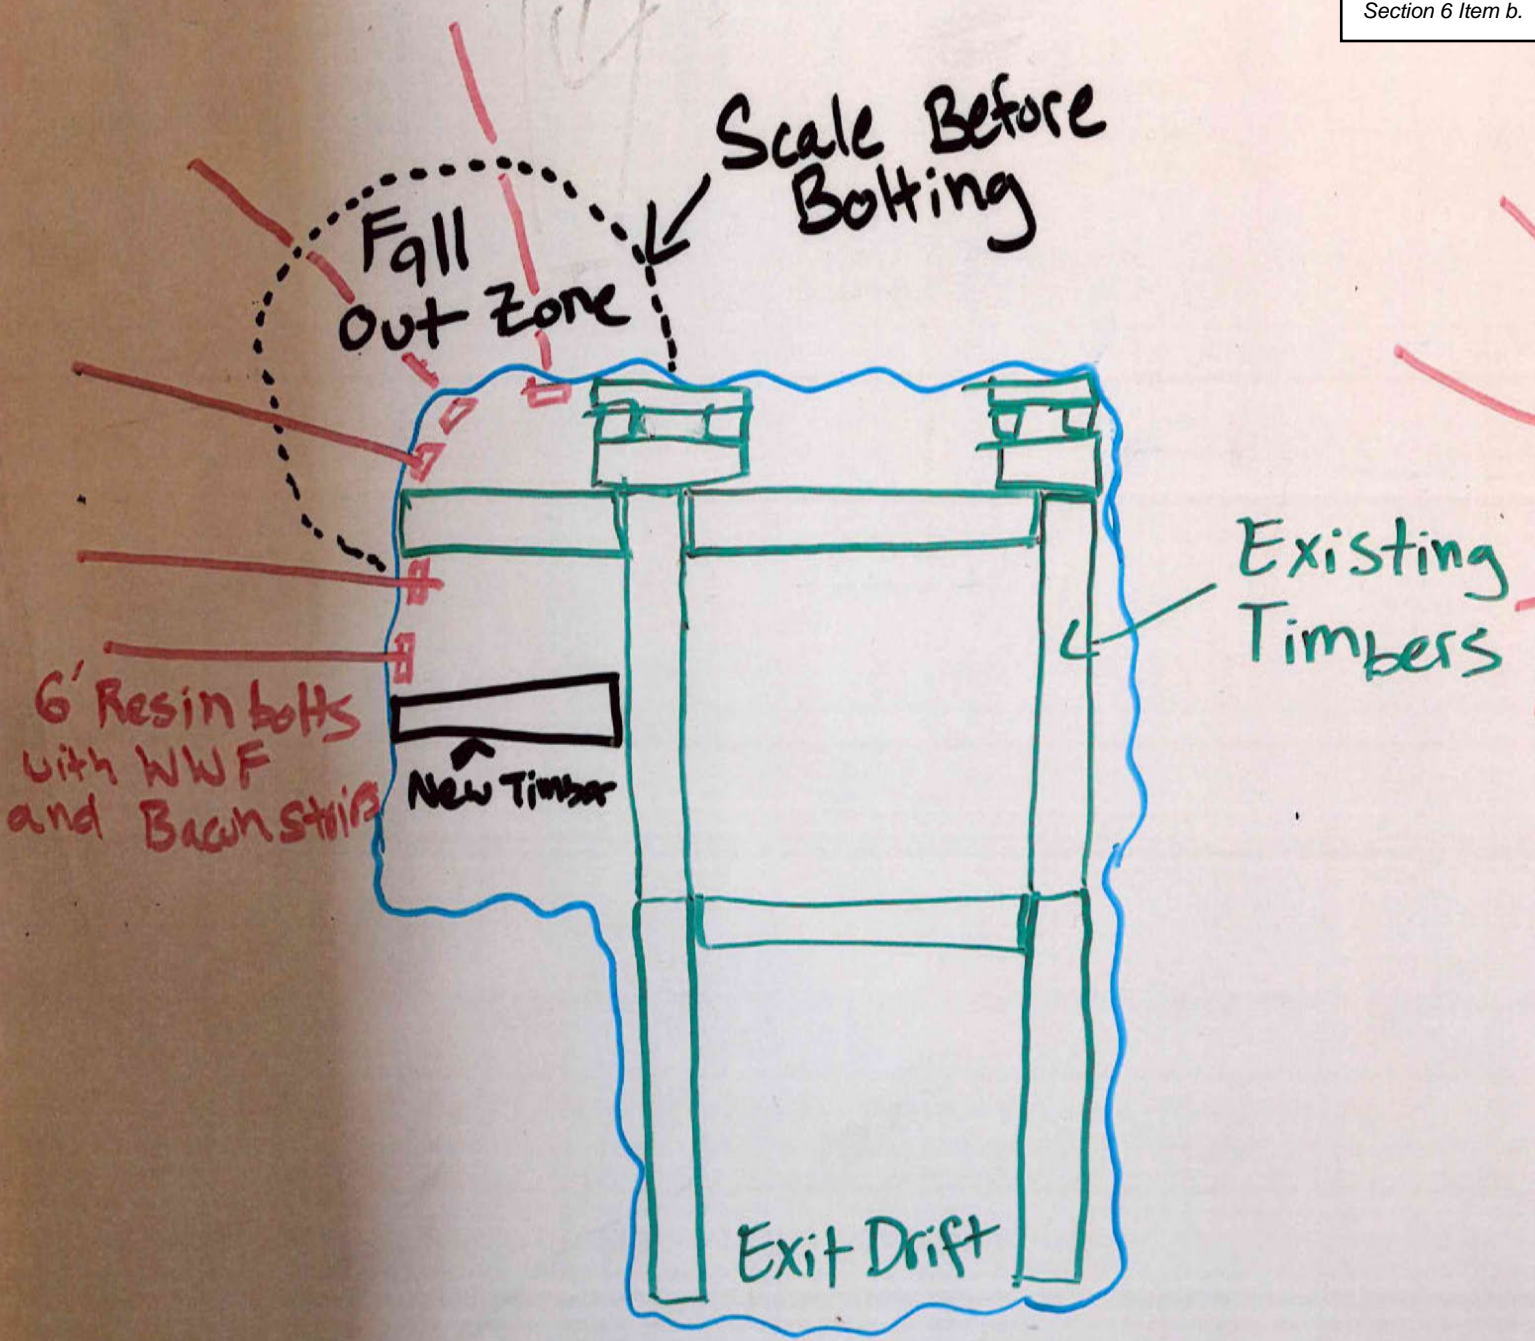 Section 6 Item b.
Scale Before
Bolting
Fall
Out Zone
Existing
Timbers
6' Resin bolts
with WWF
and Bacon strips
New Timber
Exit Drift